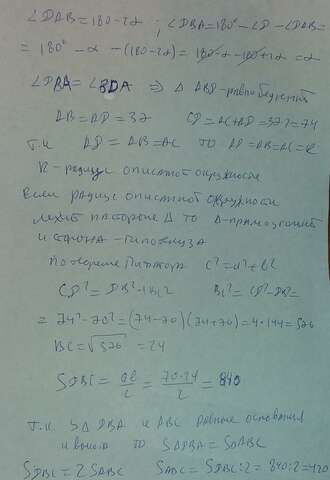 ∠DAB=180-2α ; ∠DBA=180°-∠D-∠DAB=
= 180° - α - (180-2α) = 180-α-180+2α = α
∠DBA = ∠BDA ⇒ Δ ABD-равнобедренный
AB=AD=37 CD=AC+AD=37·2=74
Т.к AD=AB=AC то AD=AB=AC=R
R-радиус описанной окружности
Если радиус описанной окружности
лежит на стороне Δ то Δ-прямоугольный
и сторона -гипотенуза
По теореме Пифагора c²=a²+b²
CD²=DB²+BC² BC²=CD²-DB²=
= 74²-70²=(74-70)(74+70)=4·144=576
BC=√576 =24
SDBC= ab/2 = 70·24/2 =840
Т.к. SΔ DBA и ABC равные основания
и высота то SΔDBA=SΔABC
SDBC=2SABC SABC=SDBC:2=840:2=420